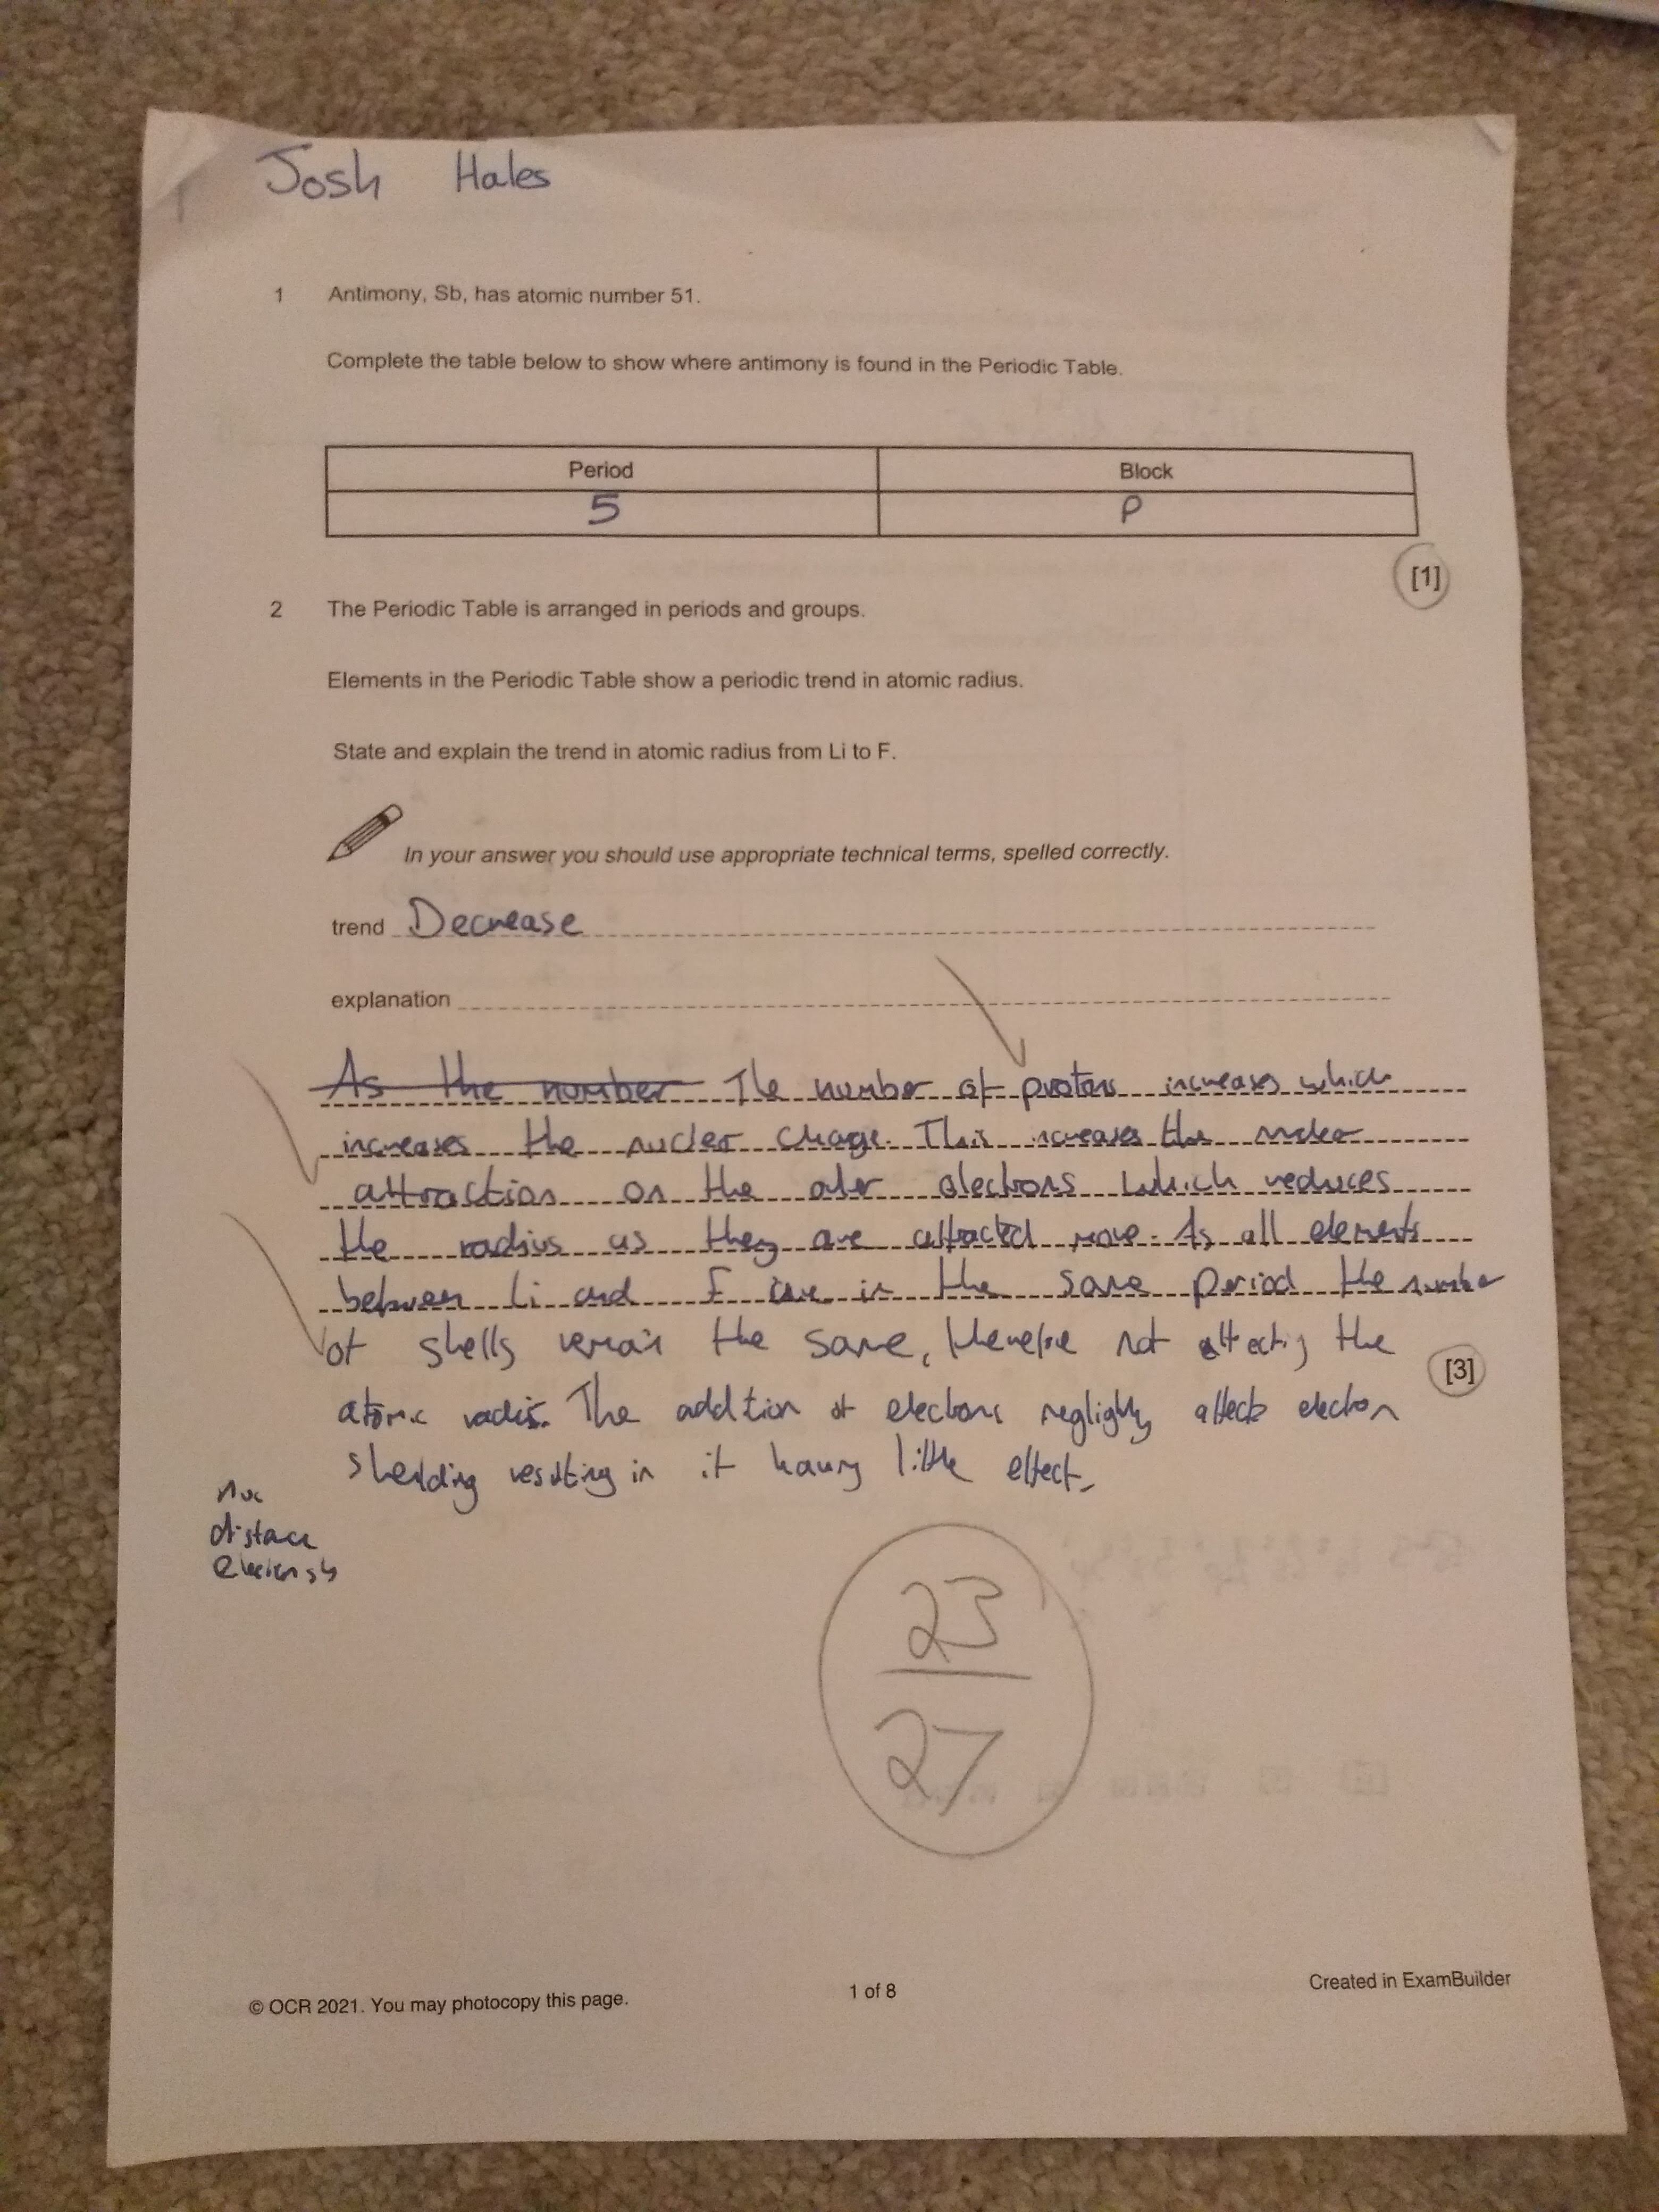 Josh Hales
1 Antimony, Sb, has atomic number 51.
Complete the table below to show where antimony is found in the Periodic Table.
Period Block
5 P
[1]
2 The Periodic Table is arranged in periods and groups.
Elements in the Periodic Table show a periodic trend in atomic radius.
State and explain the trend in atomic radius from Li to F.
In your answer you should use appropriate technical terms, spelled correctly.
trend Decrease
explanation
As the number The number of protons increases which
increases the nucler charge. This increases the nuclear
attraction on the outer electrons which reduces
the radius as they are attracted more. As all elements
between Li and F are in the same period the number
of shells remain the same, therefore not affecting the
[3]
atomic radis. The addition of electrons negligibly affects electron
sheilding resulting in it having little effect.
nuc
distance
23
27
© OCR 2021. You may photocopy this page. 1 of 8 Created in ExamBuilder